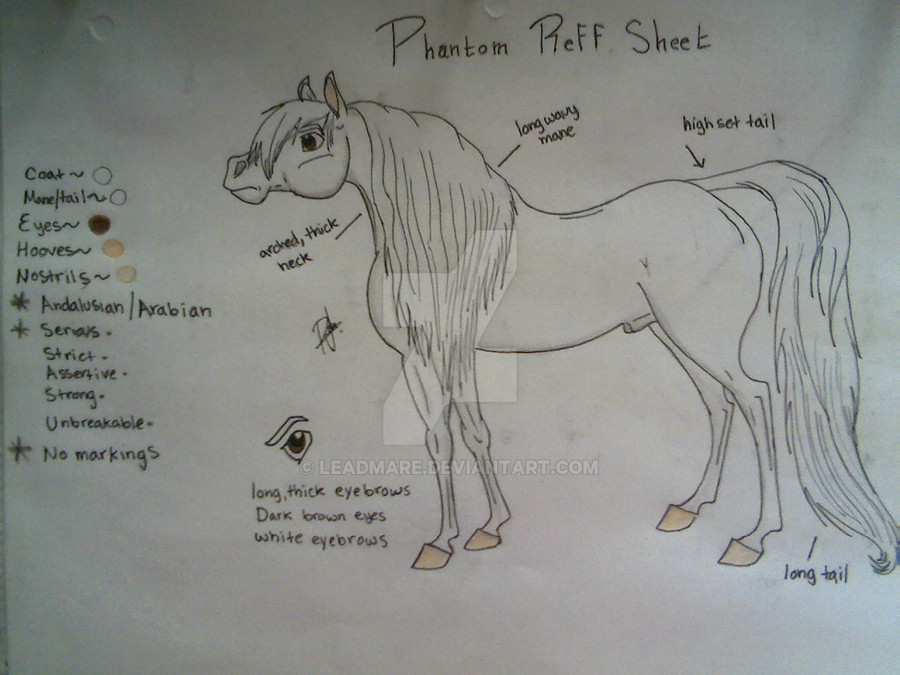 Phantom Reff Sheet
long wavy
mane
high set tail
Coat~
Mane/tail~
Eyes~
Hooves~
Nostrils~
* Andalusian/Arabian
* Serious.
Strict.
Assertive.
Strong.
Unbreakable.
* No markings
arched, thick
neck
© LEADMARE.DEVIANTART.COM
long, thick eyebrows
Dark brown eyes
white eyebrows
long tail